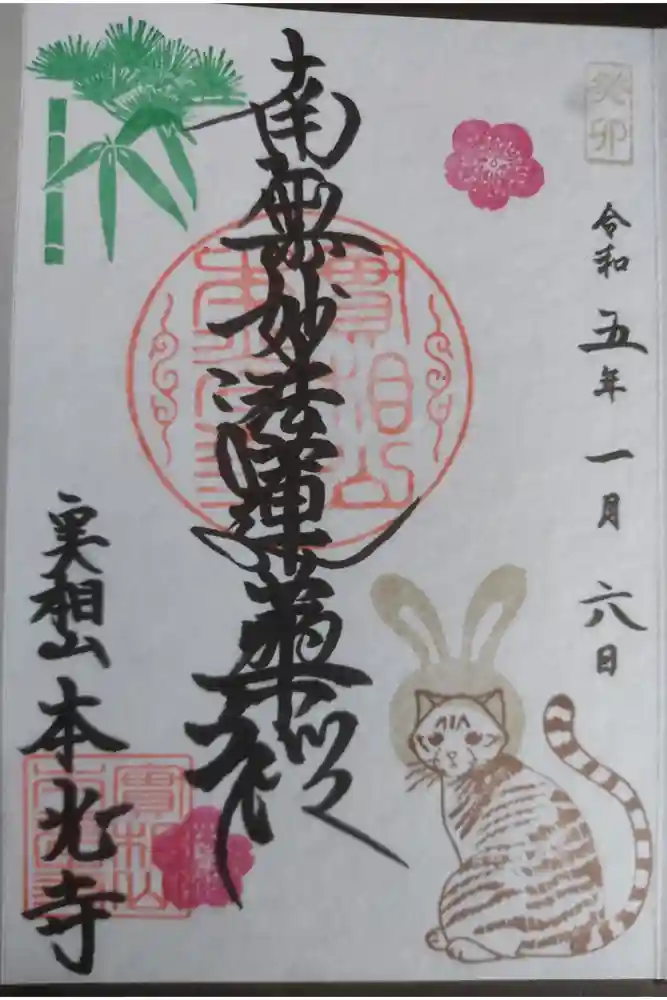 癸卯
令和五年一月六日
南無妙法蓮華経
実相山
本光寺
實相山
本光寺
實相山
本光寺